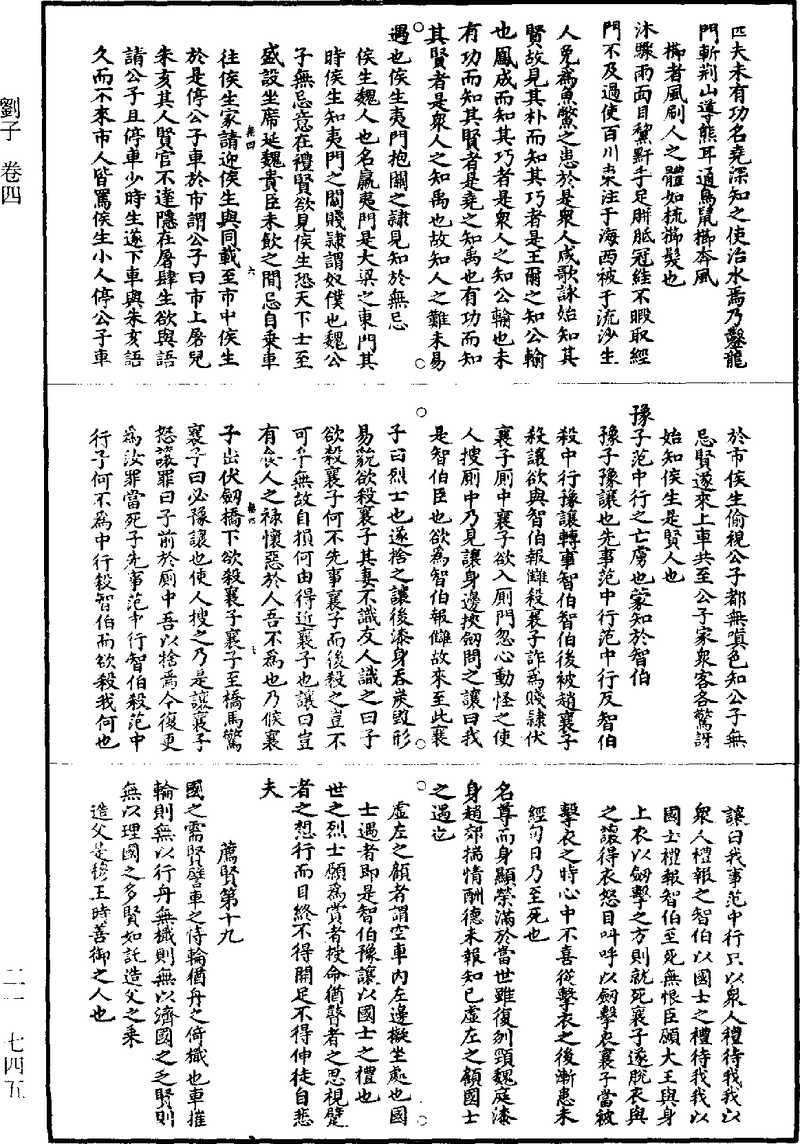 匹夫未有功名堯深知之使治水焉乃鑿龍
門斬荆山導熊耳通鳥鼠櫛奔風
櫛者風刷人之體如梳櫛髮也
沐驟雨面目黧黚手足胼胝冠絓不暇取經
門不及過使百川東注于海西被于流沙生
人免為魚鱉之患於是衆人咸歌詠始知其
賢故見其朴而知其巧者是王爾之知公輸
也鳳成而知其巧者是衆人之知公輸也未
有功而知其賢者是堯之知禹也有功而知
其賢者是衆人之知禹也故知人之難未易
遇也侯生夷門抱關之隷見知於無忌
侯生魏人也名嬴夷門是大梁之東門其
時侯生知夷門之關賤隷謂奴僕也魏公
子無忌意在禮賢欲見侯生恐天下士至
盛設坐席延魏貴臣未飲之間忌自乗車
往侯生家請迎侯生與同載至市中侯生
於是停公子車於市謂公子曰市上屠兒
朱亥其人賢官不達隱在屠肆生欲與語
請公子且停車少時生遂下車與朱亥語
久而不來市人皆罵侯生小人停公子車
於市侯生偷視公子都無嗔色知公子無
忌賢遂來上車共至公子家衆客各驚訝
始知侯生是賢人也
豫子范中行之亡虜也蒙知於智伯
豫子豫讓也先事范中行范中行反智伯
殺中行豫讓轉事智伯智伯後被趙襄子
殺讓欲與智伯報讎殺襄子詐為賤隷伏
襄子厠中襄子欲入厠門忽心動怪之使
人搜厠中乃見讓身邊挾劒問之讓曰我
是智伯臣也欲為智伯報讎故來至此襄
子曰烈士也遂捨之讓後漆身吞炭毀形
易貌欲殺襄子其妻不識友人識之曰子
欲殺襄子何不先事襄子而後殺之豈不
可乎無故自損何由得近襄子也讓曰豈
有食人之祿懷惡於人吾不為也乃候襄
子出伏劒橋下欲殺襄子襄子至橋馬驚
襄子曰必豫讓也使人搜之乃是讓襄子
怒讓罪曰子前於厠中吾以捨焉今復更
為汝罪當死子先事范中行智伯殺范中
行子何不為中行殺智伯而欲殺我何也
讓曰我事范中行只以衆人禮待我我以
衆人禮報之智伯以國士之禮待我我以
國士禮報智伯至死無恨臣願大王與身
上衣以劒擊之方則就死襄子遂脱衣與
之讓得衣怒目叫呼以劒擊衣襄子當被
擊衣之時心中不喜從擊衣之後漸患未
經旬日乃至死也
名尊而身顯榮滿於當世雖復刎頸魏庭漆
身趙郊揣情酬德未報知已虚左之顧國士
之遇也
虚左之顧者謂空車内左邊擬坐處也國
士遇者即是智伯豫讓以國士之禮也
世之烈士願為賞者授命猶瞽者之思視躄
者之想行而目終不得開足不得伸徒自悲
夫
薦賢第十九
國之需賢譬車之恃輪猶舟之倚檝也車摧
輪則無以行舟無檝則無以濟國之乏賢則
無以理國之多賢如託造父之乘
造父是穆王時善御之人也
劉子 卷四
二一 七四五